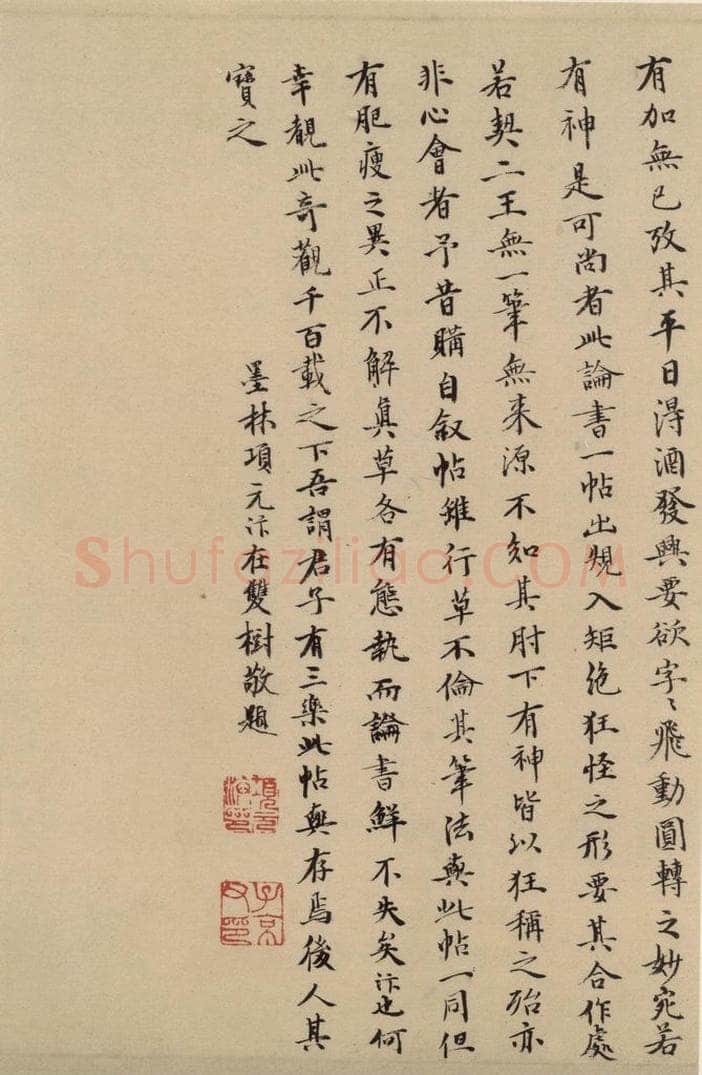 有加無已攷其平日淂酒發興要欲字〻飛動圓轉之妙宛若
有神是可尚者此論書一帖出規入矩絶狂怪之形要其合作處
若契二王無一筆無来源不知其肘下有神皆以狂稱之殆亦
非心會者予昔購自叙帖雖行草不倫其筆法與此帖一同但
有肥瘦之異正不解真草各有態執而論書鮮不失矣汴也何
幸覩此竒觀千百載之下吾謂君子有三樂此帖與存焉後人其
寳之
墨林項元汴在雙樹敬題
項元汴印
子京父印
Shufaziliao.COM